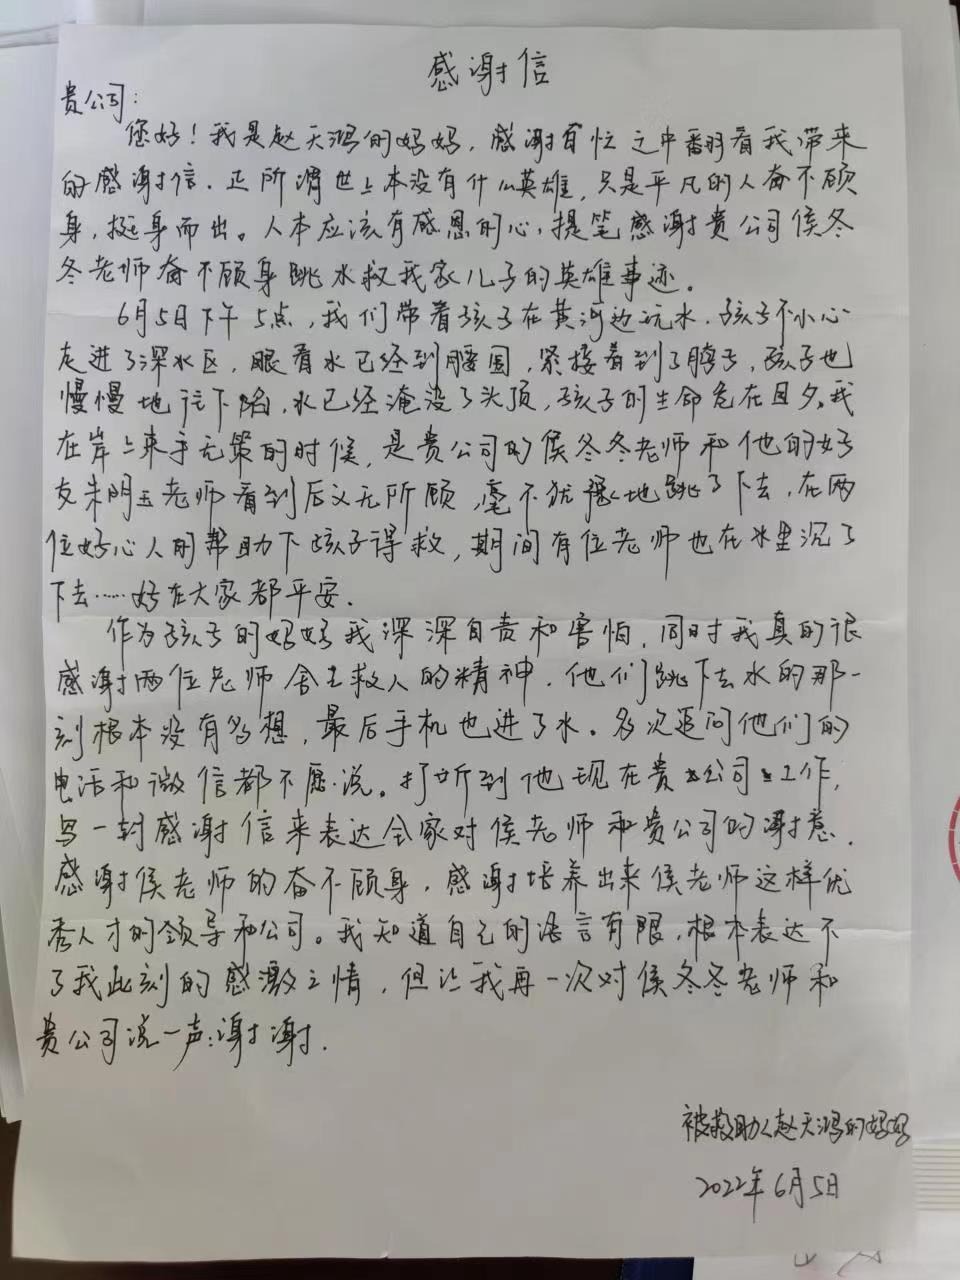 感谢信
贵公司:
您好!我是赵天鸿的妈妈,感谢百忙之中翻看我带来
的感谢信.正所谓世上本没有什么英雄,只是平凡的人奋不顾
身,挺身而出。人本应该有感恩的心,提笔感谢贵公司侯冬
冬老师奋不顾身跳水救我家儿子的英雄事迹。
6月5日下午5点,我们带着孩子在黄河边玩水.孩子不小心
走进了深水区,眼看水已经到腰围,紧接着到了脖子,孩子也
慢慢地往下陷,水已经淹没了头顶,孩子的生命危在旦夕。我
在岸上束手无策的时候,是贵公司的侯冬冬老师和他的好
友朱明玉老师看到后义无所顾,毫不犹豫地跳了下去,在两
位好心人的帮助下孩子得救,期间有位老师也在水里沉了
下去……好在大家都平安.
作为孩子的妈妈我深深自责和害怕,同时我真的很
感谢两位老师舍己救人的精神.他们跳下去水的那一
刻根本没有多想,最后手机也进了水。多次追问他们的
电话和微信都不愿说。打听到他现在贵公司工作,
写一封感谢信来表达全家对侯老师和贵公司的谢意.
感谢侯老师的奋不顾身,感谢培养出来侯老师这样优
秀人才的领导和公司。我知道自己的语言有限,根本表达不
了我此刻的感激之情,但让我再一次对侯冬冬老师和
贵公司说一声:谢谢.
被救助人赵天鸿的妈妈
2022年6月5日